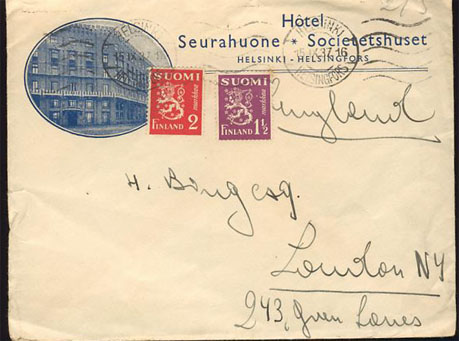 2/3
Hôtel
Seurahuone * Societetshuset
HELSINKI - HELSINGFORS
HELSINKI
15.IX.37.16
HELSINGFORS
SUOMI
markkaa
FINLAND 2
SUOMI
markkaa
FINLAND 1½
England
H. Bing esq.
London N4
243, Green Lanes